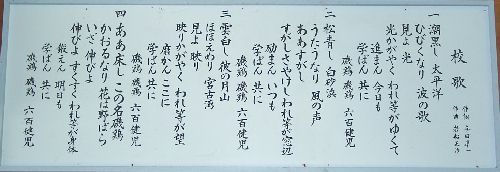 校歌
作詞
作曲
一 潮黒し 太平洋
ひびくなり 波の歌
見よ 光
光かがやく われ等がゆくて
進まん 今日も
学ばん 共に
磯鶏 磯鶏 六百健児
二 松青し 白砂浜
うたうなり 風の声
ああすがし
すがしさやけし われ等が窓辺
励まん いつも
学ばん 共に
磯鶏 磯鶏 六百健児
三 雲白し 彼の月山
ほほえめり 宮古湾
見よ 映ゆ
映ゆかがやく われ等が望
磨かん ここに
学ばん 共に
磯鶏 磯鶏 六百健児
四 ああ床し この名磯鶏
かおるなり 花は野ばら
いざ 伸びよ
伸びよ すくすく われ等が身体
鍛えん 明日も
学ばん 共に
磯鶏 磯鶏 六百健児